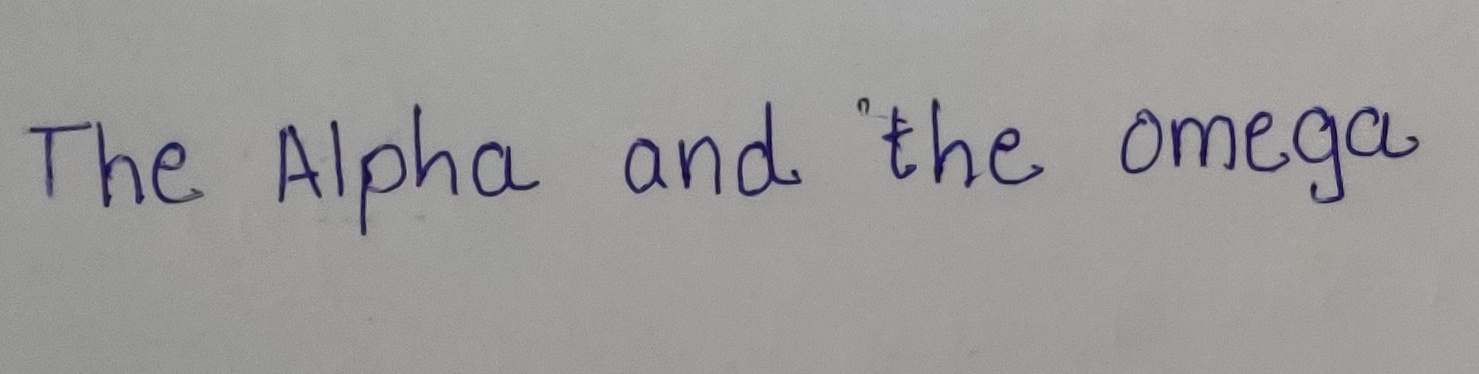 The Alpha and the omega